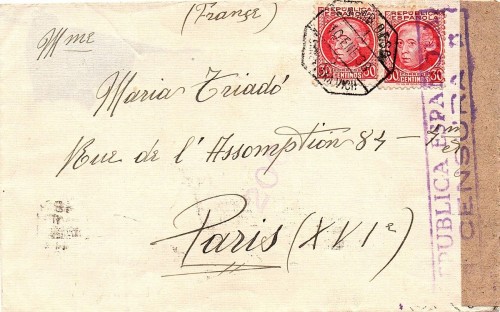 (France)
REPUBLICA
ESPAÑOLA
30 CENTIMOS 30
REPUBLICA
ESPAÑOLA
30 CENTIMOS 30
Mme
Maria Triadó
Rue de l'Assomption 84 -
Paris (XVIe)
REPUBLICA ESPA
CENSURA